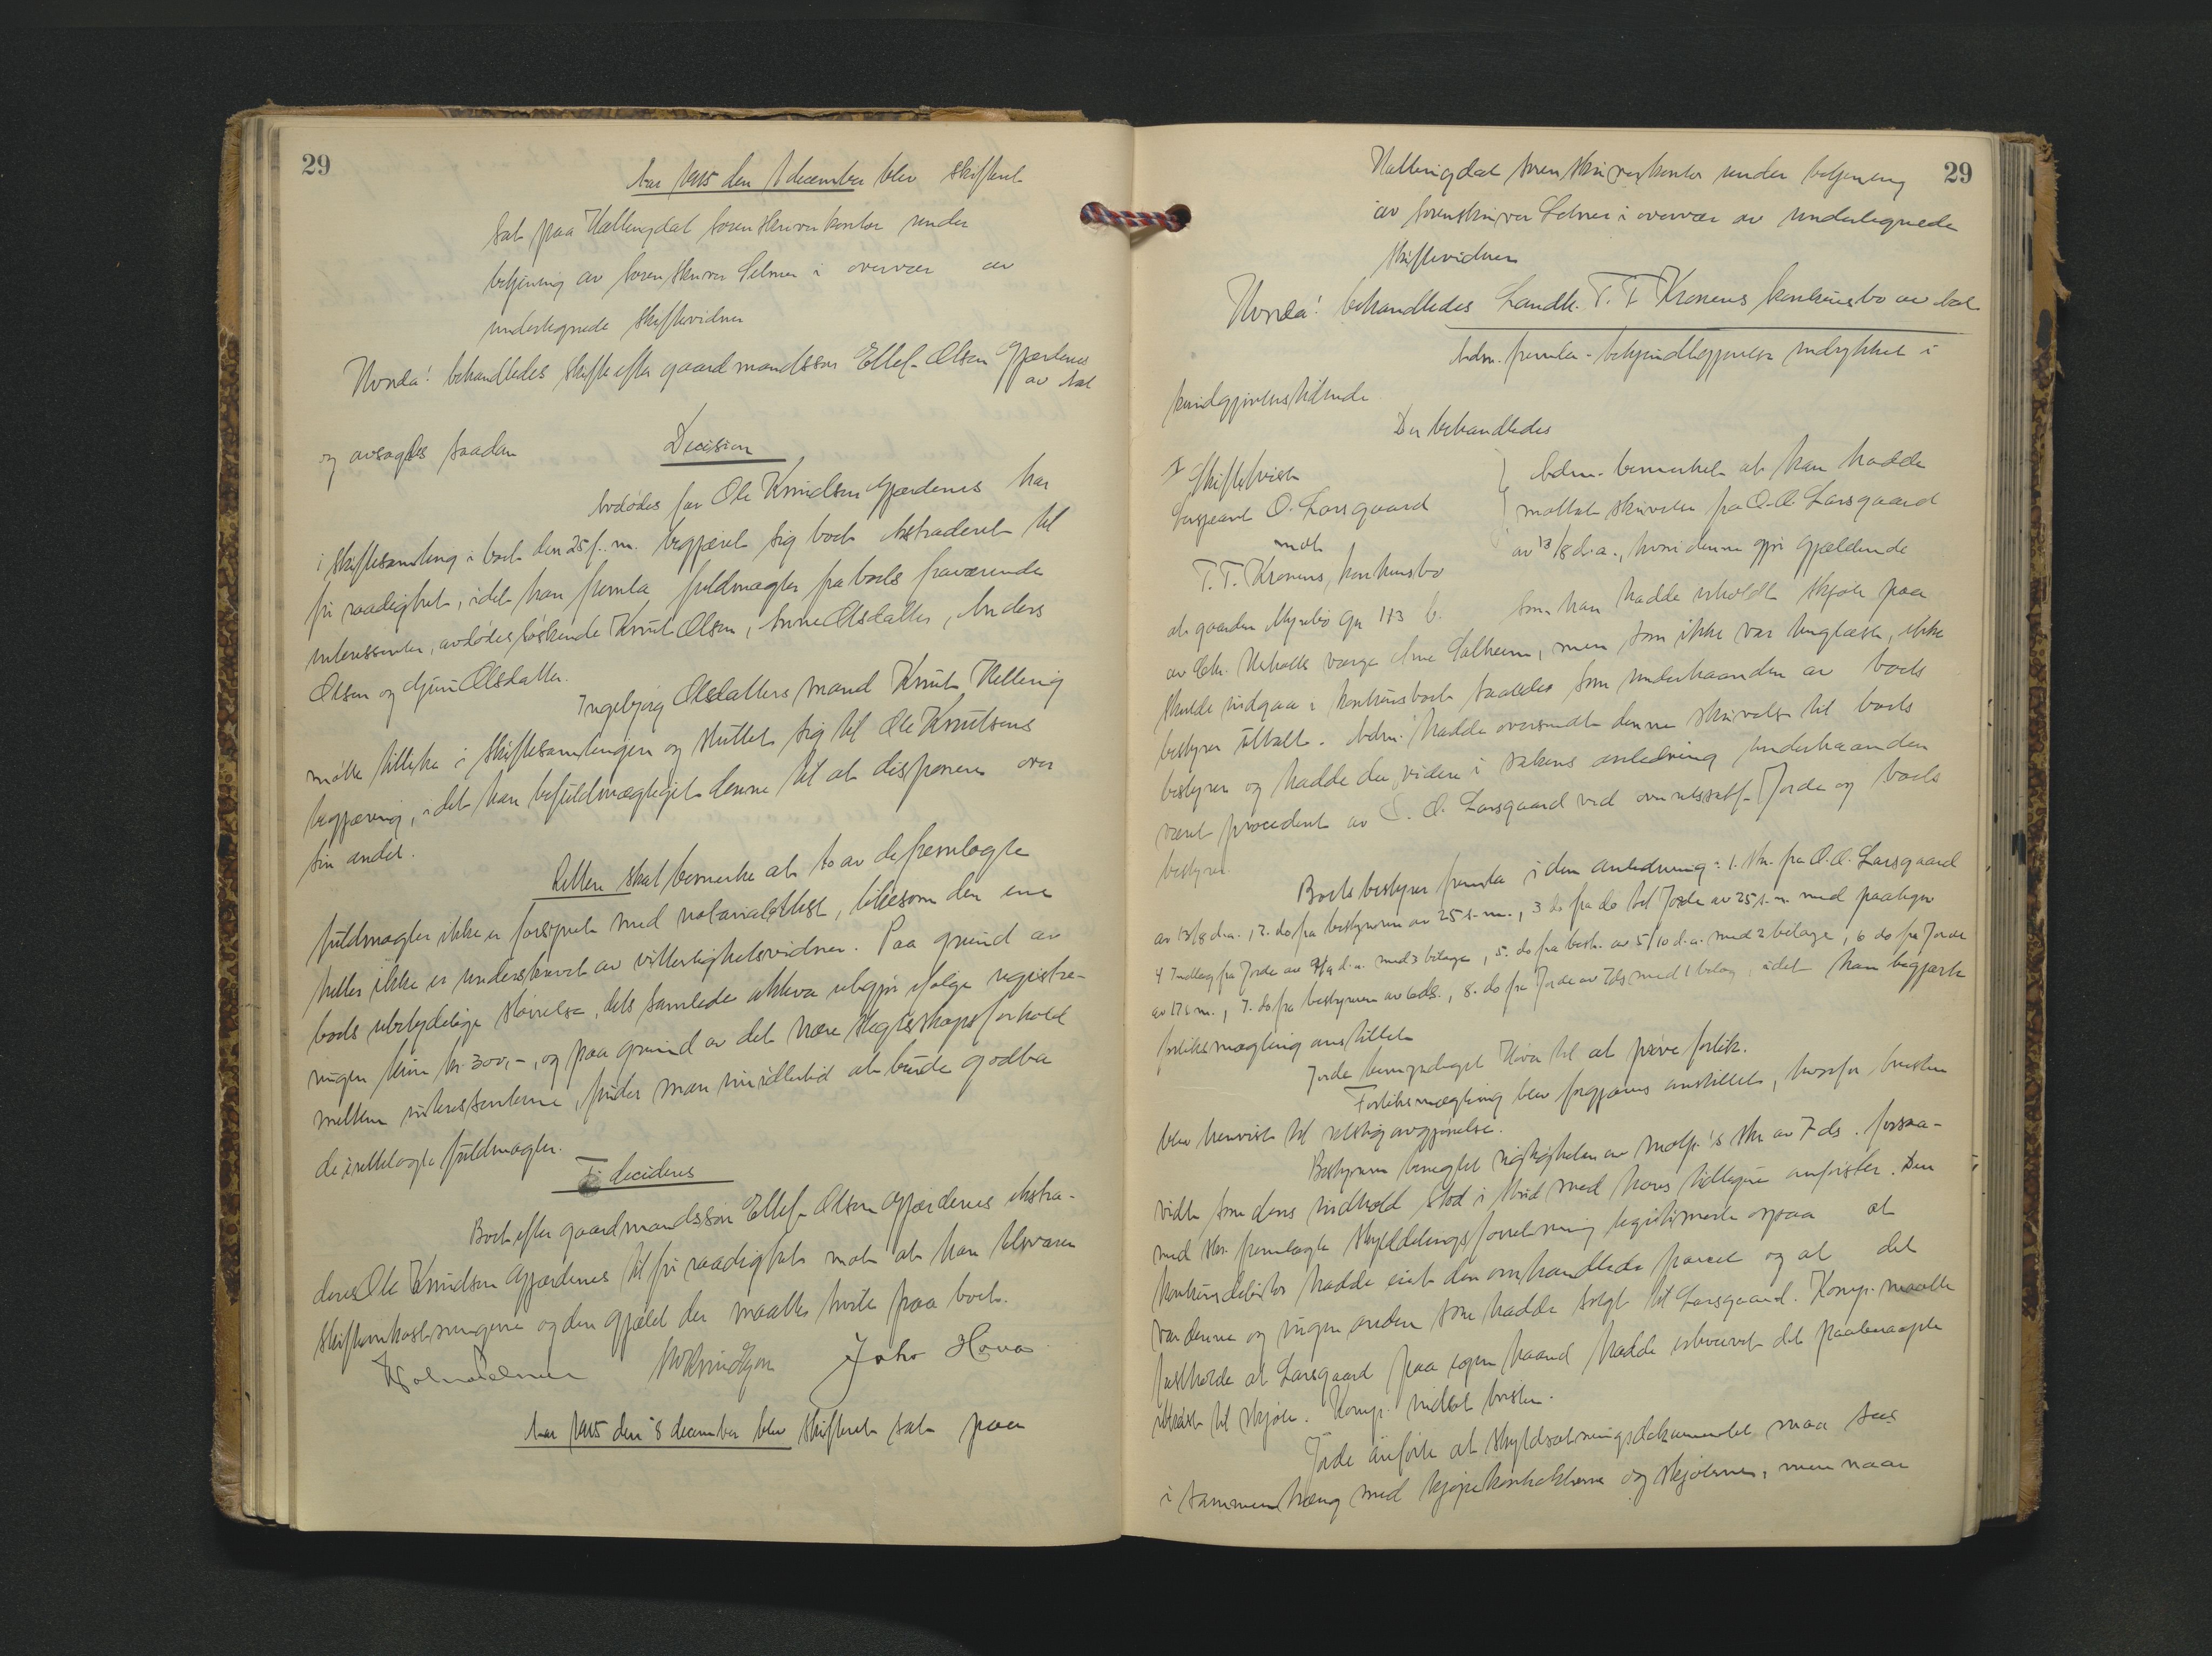 29
Aar 1915 den 1 december blev skifteret
sat paa Hallingdal sorenskriverkontor under
betjening av sorenskriver Selmer i overvær av
undertegnede skiftevidner
Hvorda! behandledes skifte efter gaardmandssøn Ellef Olsen Gjærdenes
av Aal
og avsagdes saadan Decision
Avdødes far Ole Knudsen Gjærdenes har
i skiftesamling i boet den 25 f. m. begjæret sig boet ekstraderet til
fri raadighet, idet han fremla fuldmagter fra boets fraværende
interessenter, avdødes søskende Knut Olsen, Anne Olsdatter, Anders
Olsen og Guri Olsdatter.
Ingebjørg Olsdatters mand Knut Helling
møtte tillike i skiftesamlingen og sluttet sig til Ole Knutsens
begjæring, idet han befuldmægtiget denne til at disponere over
sin andel.
Retten skal bemerke at to av de fremlagte
fuldmagter ikke er forsynet med notarialattest, likesom den ene
heller ikke er underskrevet av vitterlighetsvidner. Paa grund av
boets ubetydelige størrelse, dets samlede aktiva utgjør ifølge registre-
ringen kun kr. 300,-, og paa grund av det nære slegtsskapsforhold
mellem interessenterne, finder man imidlertid at burde godta
de irettelagte fuldmagter.
Ti decideres
Boet efter gaardmandssøn Ellef Olsen Gjærdenes ekstra-
deres Ole Knudsen Gjærdenes til fri raadighet mot at han tilsvarer
skifteomkostningerne og den gjæld der maatte hvile paa boet.
Selmer John Hova
Aar 1915 den 8 december blev skifteret sat paa
29
Hallingdal sorenskriverkontor under betjening
av sorenskriver Selmer i overvær av undertegnede
skiftevidner
Hvorda! behandledes Landh. T. T. Kronens konkursbo av Aal
Adm. fremla bekjendtgjørelse indrykket i
kundgjørelsestidende
Der behandledes
I Skiftetvist
Sersjeant O. Larsgaard
mot
T. T. Kronens konkursbo
Adm. bemerket at han hadde
mottat skrivelse fra O. O. Larsgaard
av 13/8 d. a., hvori denne gjør gjældende
at gaarden Myrebø gn 113 b. som han hadde erholdt skjøte paa
av værge Arne Salheim, men som ikke var tinglæst, ikke
skulde indgaa i konkursboet saaledes som underhaanden av boets
bestyrer uttalt. Adm. hadde oversendt denne skrivelse til boets
bestyrer og hadde der videre i sakens anledning underhaanden
været procedert av O. O. Larsgaard ved overretssakf. Jorde og boets
bestyrer.
Boets bestyrer fremla i den anledning: 1. skr. fra O. O. Larsgaard
av 13/8 d. a., 2. do fra bestyreren av 25 s. m., 3 do fra do til Jorde av 25 s. m. med paategn
4 Indlæg fra Jorde av 4/9 d. a. med 3 bilage, 5. do fra best. av 5/10 d. a. med 2 bilage, 6 do fra Jorde
av 17 s. m., 7. do fra bestyreren av 6 ds., 8. do fra Jorde av 7 ds med 1 bilag, idet han begjærte
forliksmægling anstillet
Jorde Hova til at prøve forlik.
Forliksmægling blev forgjæves anstillet, hvorfor tvisten
blev henvist til retslig avgjørelse.
Bestyreren benegtet rigtigheten av motp.'s skr av 7 ds. forsaa-
vidt som dens indhold stod i strid med hans tidligere anførsler. Den
med skr. fremlagte skylddelingsforretning legitimerte ogsaa at
konkursdebitor hadde eiet den omhandlede parcel og at det
var denne og ingen anden som hadde solgt til Larsgaard. Komp. maatte
fastholde at Larsgaard paa egen haand hadde erhvervet det paaberaapte
utkast til skjøte. Komp. indlot tvisten.
Jorde anførte at skyldsætningsdokumentet maa sees
i sammenhæng med kjøpekontrakterne og skjøterne, men naar